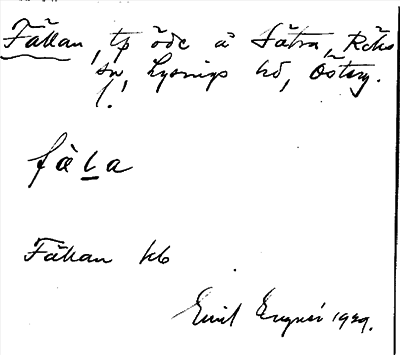 Fållan, tp öde å Sätra, Röks
sn, Lysings hd, Österg.
l.
få̀l̲a
Fållan kb
Emil 1929.